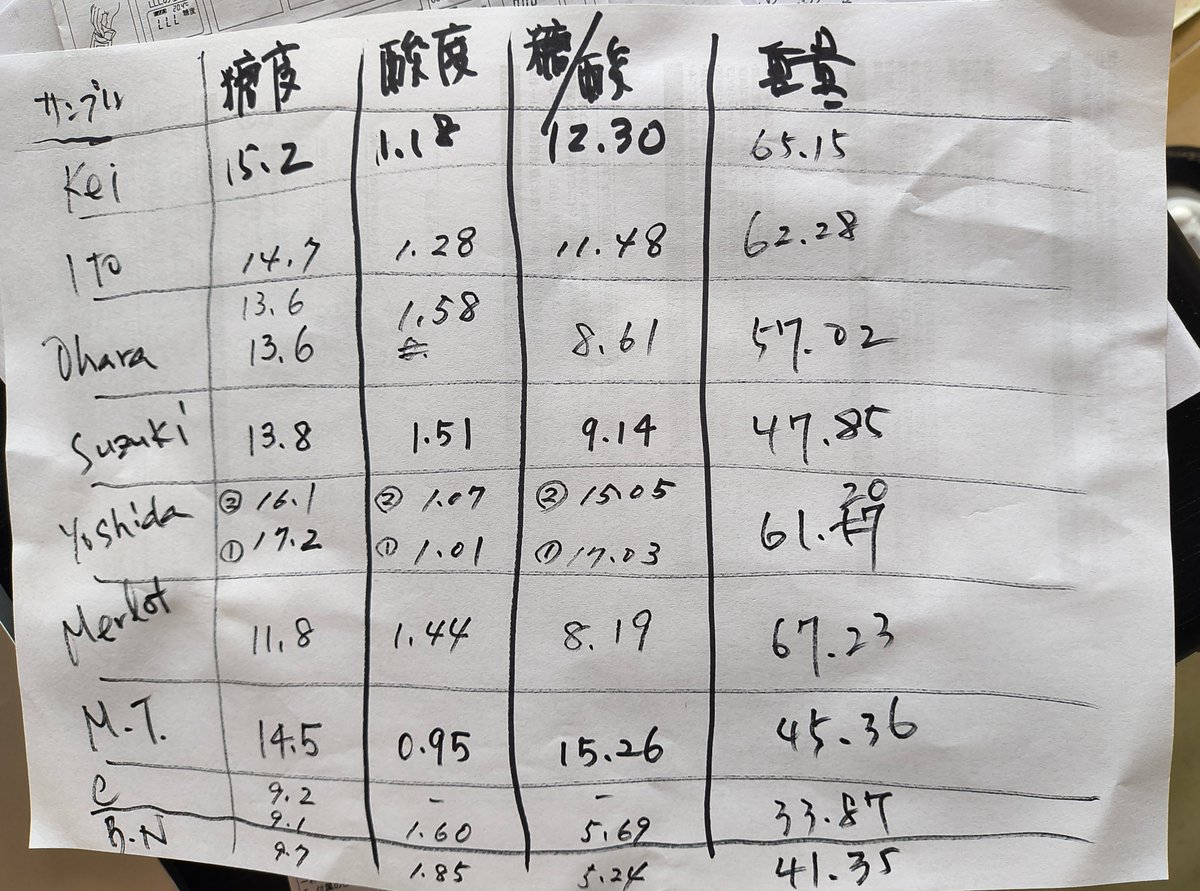 サンプル 糖度 酸度 糖/酸 重量
Kei 15.2 1.18 12.30 65.15
Ito 14.7 1.28 11.48 62.28
13.6 1.58
Ohara 13.6 8.61 57.02
Suzuki 13.8 1.51 9.14 47.85
Yoshida ② 16.1 ② 1.07 ② 15.05 61.20
① 17.2 ① 1.01 ① 17.03
Merkot 11.8 1.44 8.19 67.23
M.T. 14.5 0.95 15.26 45.36
C 9.2 - - 33.87
9.1 1.60 5.69
B.N 9.7 1.85 5.24 41.35